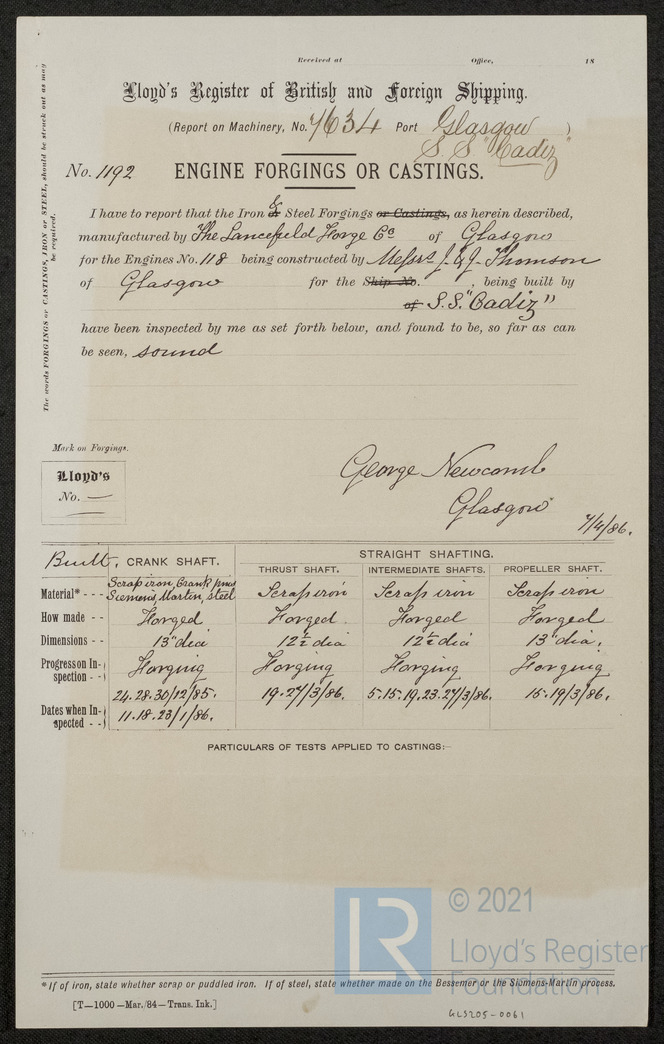 Received at Office, 18
Lloyd's Register of British and Foreign Shipping.
(Report on Machinery, No. 7634 Port Glasgow )
S. S "Cadiz"
No. 1192 ENGINE FORGINGS OR CASTINGS.
I have to report that the Iron & Steel Forgings or Castings, as herein described,
manufactured by The Lancefield Forge Co of Glasgow
for the Engines No. 118 being constructed by Messrs J. & G. Thomson
of Glasgow for the Ship No. , being built by
of S.S. "Cadiz"
have been inspected by me as set forth below, and found to be, so far as can
be seen, sound
The words FORGINGS or CASTINGS, IRON or STEEL, should be struck out as may
be required.
Mark on Forgings.
Lloyd's
No. —
George Newcomb
Glasgow
7/4/86.
Built, CRANK SHAFT. STRAIGHT SHAFTING.
THRUST SHAFT. INTERMEDIATE SHAFTS. PROPELLER SHAFT.
Material* - - - Scrap iron, Crank pins Siemens, Martin, steel Scrap iron Scrap iron Scrap iron
How made - - Forged Forged Forged Forged
Dimensions - - 13" dia 12½ dia 12½ dia 13" dia.
Progress on In-spection - - Forging Forging Forging Forging
Dates when In-spected - - 24.28.30/12/85. 11.18.23/1/86. 19.27/3/86. 5.15.19.23.27/3/86. 15.19/3/86.
PARTICULARS OF TESTS APPLIED TO CASTINGS:—
*If of iron, state whether scrap or puddled iron. If of steel, state whether made on the Bessemer or the Siemens-Martin process.
[T—1000—Mar./84—Trans. Ink.]
GLS205-0061
LR
© 2021
Lloyd's Register
Foundation